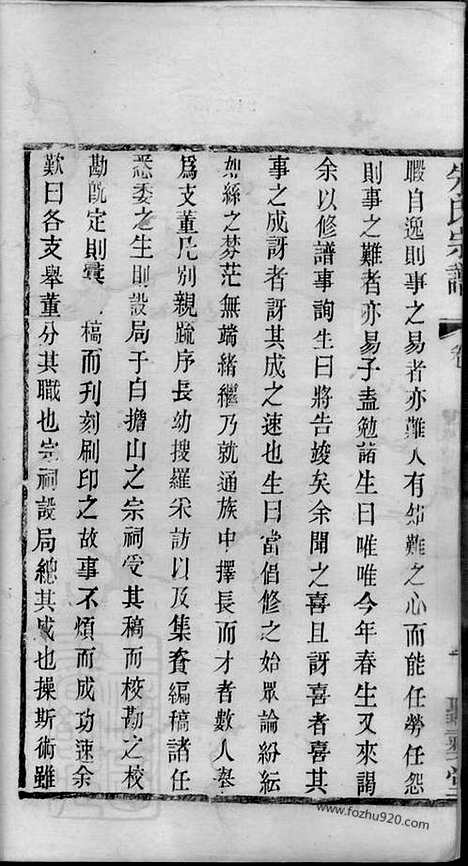 氏宗譜 卷
暇自逸則事之易者亦難人有知難之心而能任勞任怨
則事之難者亦易子盍勉諸生曰唯唯今年春生又來謁
余以修譜事詢生曰將告竣矣余聞之喜且訝喜者喜其
事之成訝者訝其成之速也生曰當倡修之始眾論紛紜
如絲之棼茫無端緒繼乃就通族中擇長而才者數人舉
爲支董凡別親疏序長幼搜羅采訪以及集資編稿諸任
悉委之生則設局于白擔山之宗祠受其稿而校勘之校
勘旣定則彙稿而刊刻刷印之故事不煩而成功速余
歎曰各支舉董分其職也宗祠設局總其成也操斯術雖
www.fozhu920.com